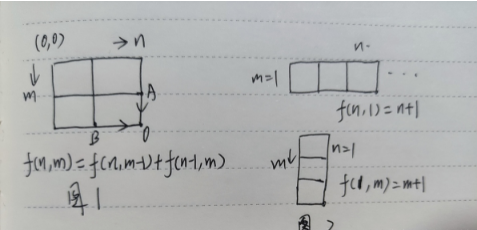 (0,0) → n
m
A
B
O
f(n,m)=f(n,m-1)+f(n-1,m)
图1
n.
m=1
...
f(n,1)=n+1
n=1
m
f(1,m)=m+1
图2